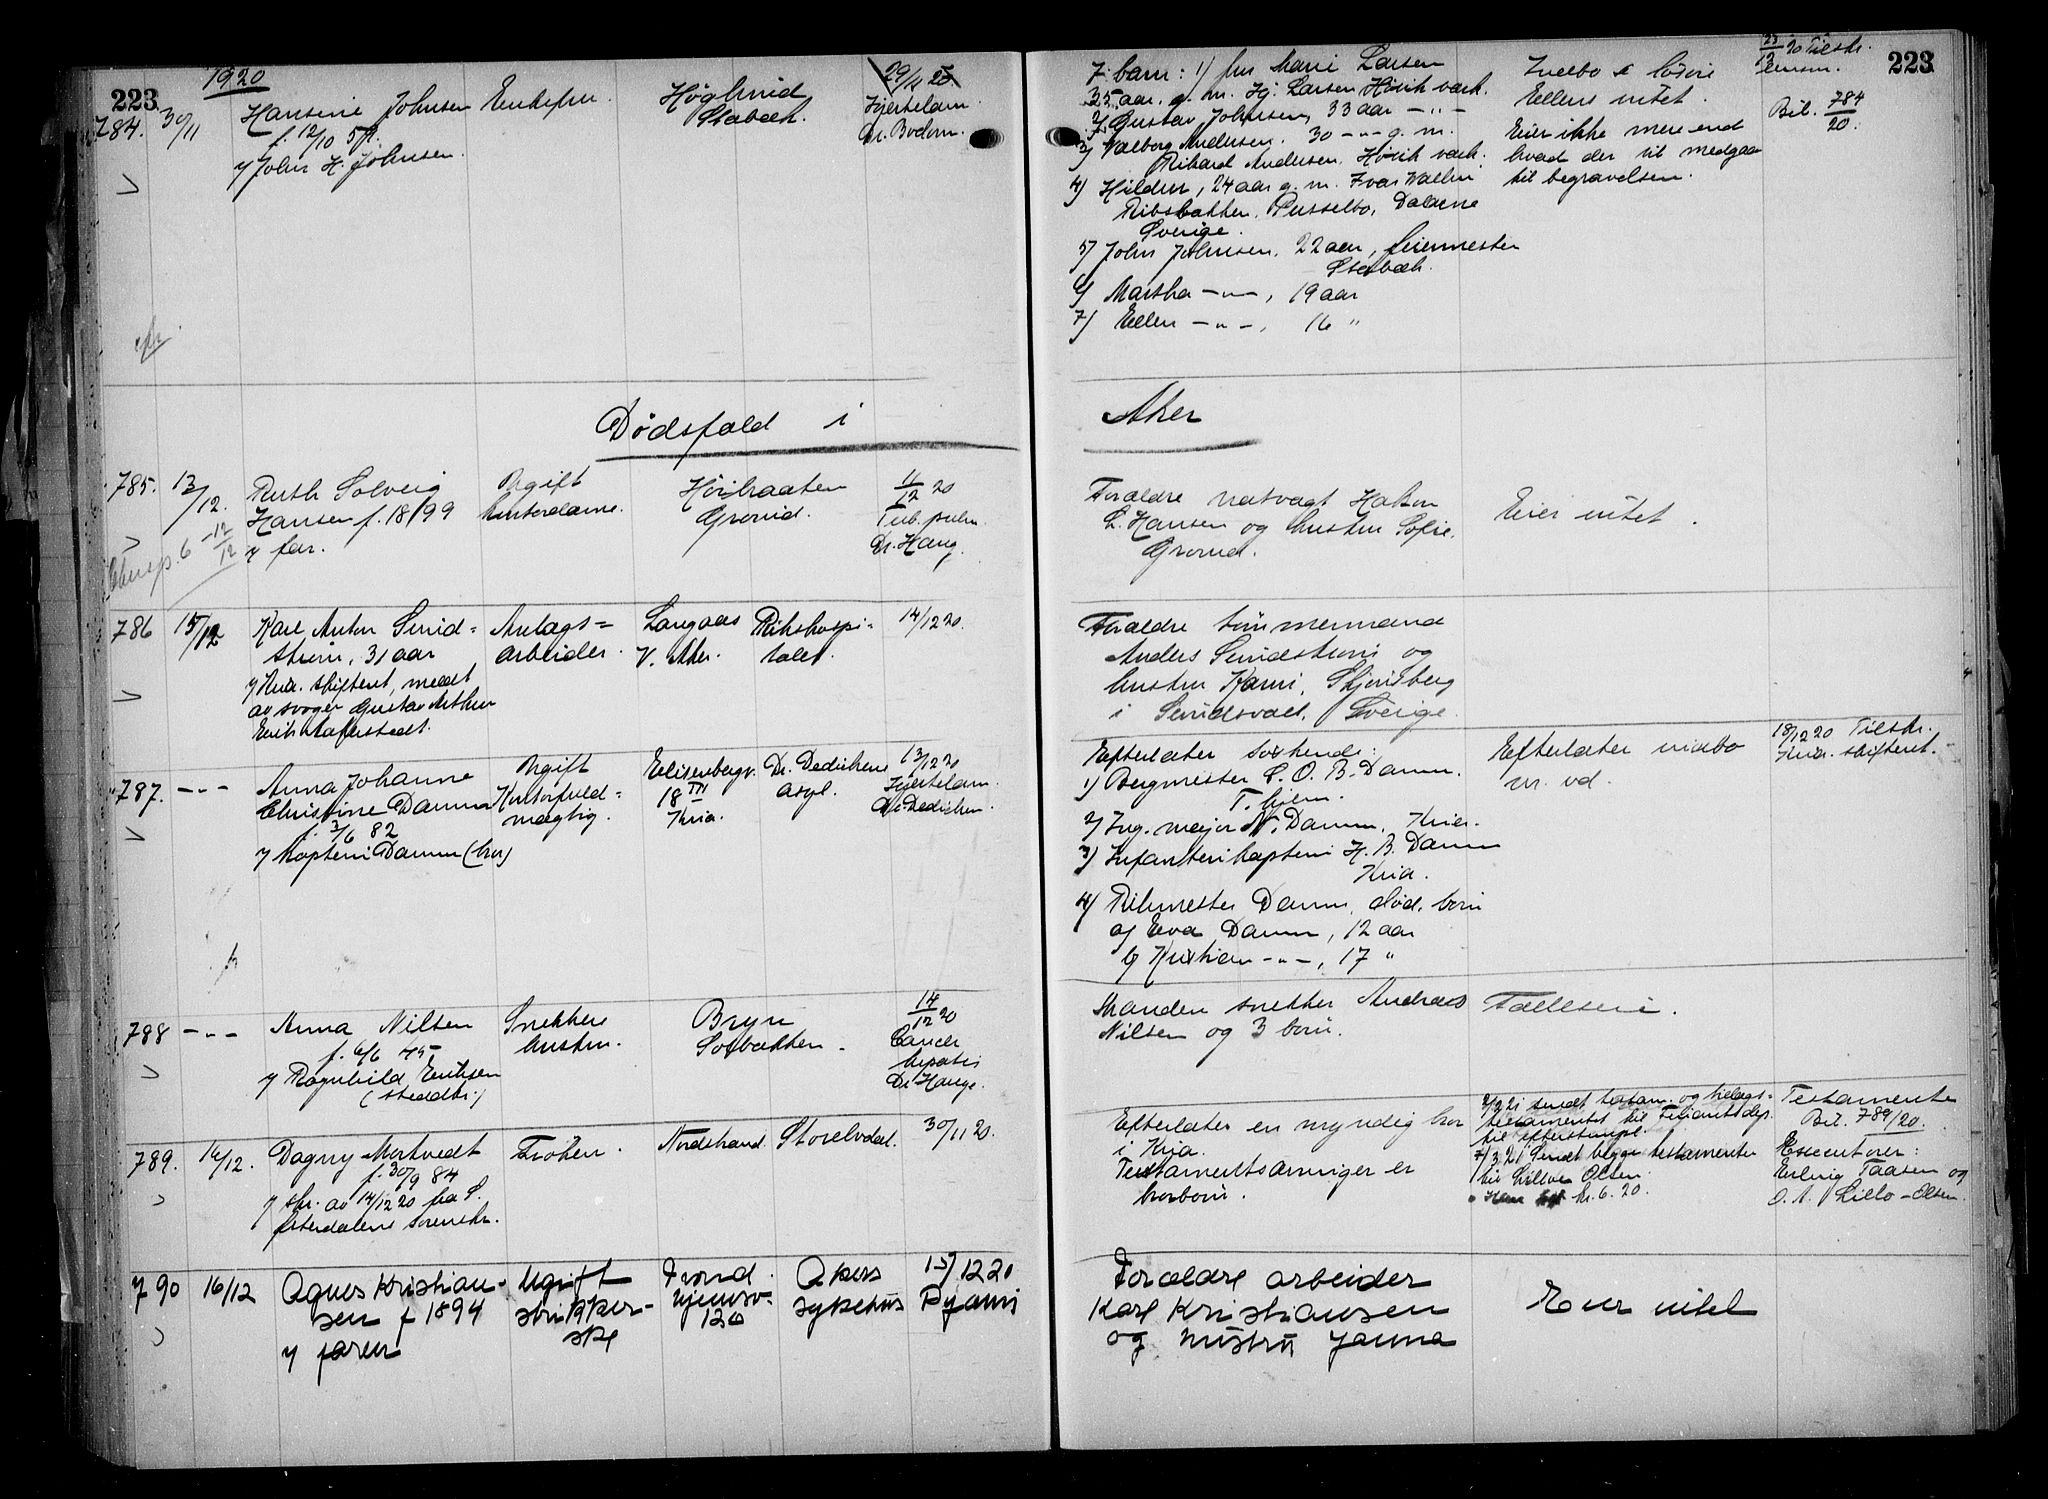 223
1920
784. 30/11
Hansine Johnsen
f. 12/10 57.
v/ John H. Johnsen.
Enkefru.
Høglund
Stabæk.
29/11 20
Hjertelam.
Dr. Bodom.
Dødsfald i
785. 13/12.
Ruth Solveig
Hansen f. 18/ 99
v/ far.
Ugift
kontordame.
Høibraaten
Grorud.
11/12 20
Tub. pulm.
Dr. Haug.
786 15/12
Karl Anton Sund=
strøm, 31 aar
v/ Kria. skifteret, meldt
av svoger Gustav Arthur
Erik
Anlægs=
arbeider.
Langaas
V. Aker.
Rikshospi=
talet.
14/12 20.
787. - " -
Anna Johanne
Christine Damm
f. 3/6 82
v/ Kaptein Damm (bror)
Ugift
Kontorfuld=
mægtig.
Eilisenbergv.
18 III
Kria.
Dr. Dedichens
asyl.
13/12 20
Hjertelam.
Dr. Dedichen.
788 - " -
Anna Nilsen
f. 6/6 45
v/ Ragnhild Eriksen
(steddtr.)
Snekkers
hustru.
Bryn
Solbakken.
14/12 20
Cancer
hepatis
Dr Hauge.
789. 16/12.
Dagny Mortvedt
f. 30/9 84
v/ skr. av 14/12 20 fra S.
Østerdalens sorenskr.
Frøken.
Nordstrand.
Storelvdal.
30/11 20.
790 16/12
Agnes Kristian-
sen f 1894
v/ faren
Ugift
strikker-
ske
Trond
hjemsv.
120
Akers
sykehus
15/12 20
Pyämi
223
7 barn: 1) fru Marie Larsen
35 aar. g. m. Hj. Larsen Høvik værk.
2) Gustav Johnsen, 33 aar - " -
3) Valborg Andersen. 30 - " - g. m.
Rikard Andersen. Høvik værk.
4) Hildur, 24 aar g. m. Ivar Wallin
Ribsbakken. Pusselbo, Dalarne
Sverige.
5) John Johnsen. 22 aar, feiermester
Stabæk.
6) Martha - " -, 19 aar
7) Ellen - " -, 16 "
Indbo & løsøre
Ellers intet.
Eier ikke mere end
hvad der vil medgaa
til begravelsen.
23/12 20 Tilskr.
Bil. 784/20.
Aker
Forældre natvagt Hakon
L. Hansen og hustru Sofie.
Grorud.
Eier intet.
Forældre tømmermand
Anders Sundstrøm og
hustru Karin, Skjønsberg
i Sundsvall, Sverige.
Efterlater søskende:
1) Bergmester C. O. B. Damm.
T.hjem.
2) Ing. major N. Damm, Kria.
3) Infanterikaptein H. B. Damm
Kria.
4) Ritmester Damm, død, barn
a) Eva Damm, 12 aar
b) Kristian - " -, 17 "
Efterlater indbo
m. vd.
18/12 20 Tilskr.
Kria. skifteret.
Manden snekker Andreas
Nilsen og 3 barn.
Fælleseie.
Efterlater en myndig bror
i Kria.
Testamentsarvinger er
brorbarn.
2/3 21 sendt testam. og tillægs-
testamentet til Finantsdep.
til efterstempl.
7/3 21 Sendt begge testamenter
til Lillo Olsen
kr. 6. 20.
Testamente
Bil. 789/20.
Executorer:
Erling Taasen og
O. A. Lillo-Olsen.
Forældre arbeider
Karl Kristiansen
og hustru Janna
Eier intet